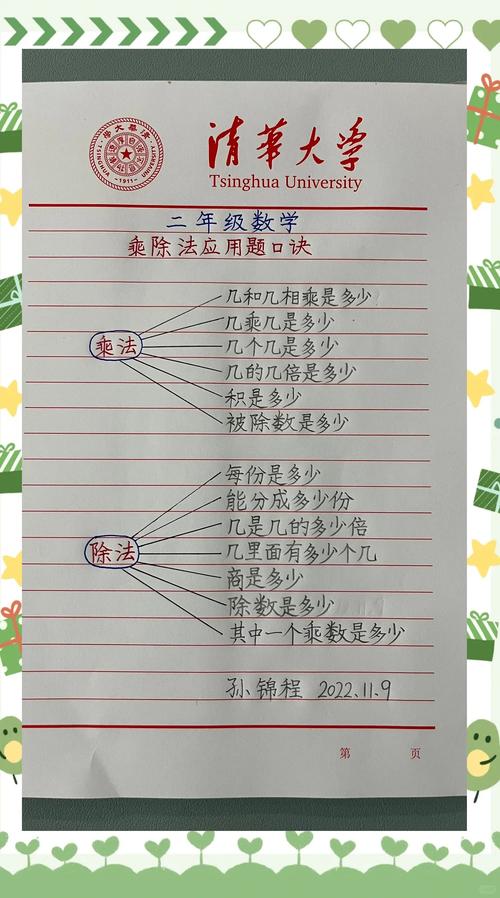 清华大学
Tsinghua University
TSINGHUA UNIVERSITY
-1911-
二年级数学
乘除法应用题口诀
乘法
几和几相乘是多少
几乘几是多少
几个几是多少
几的几倍是多少
积是多少
被除数是多少
除法
每份是多少
能分成多少份
几是几的多少倍
几里面有多少个几
商是多少
除数是多少
其中一个乘数是多少
孙锦程 2022.11.9
第 页